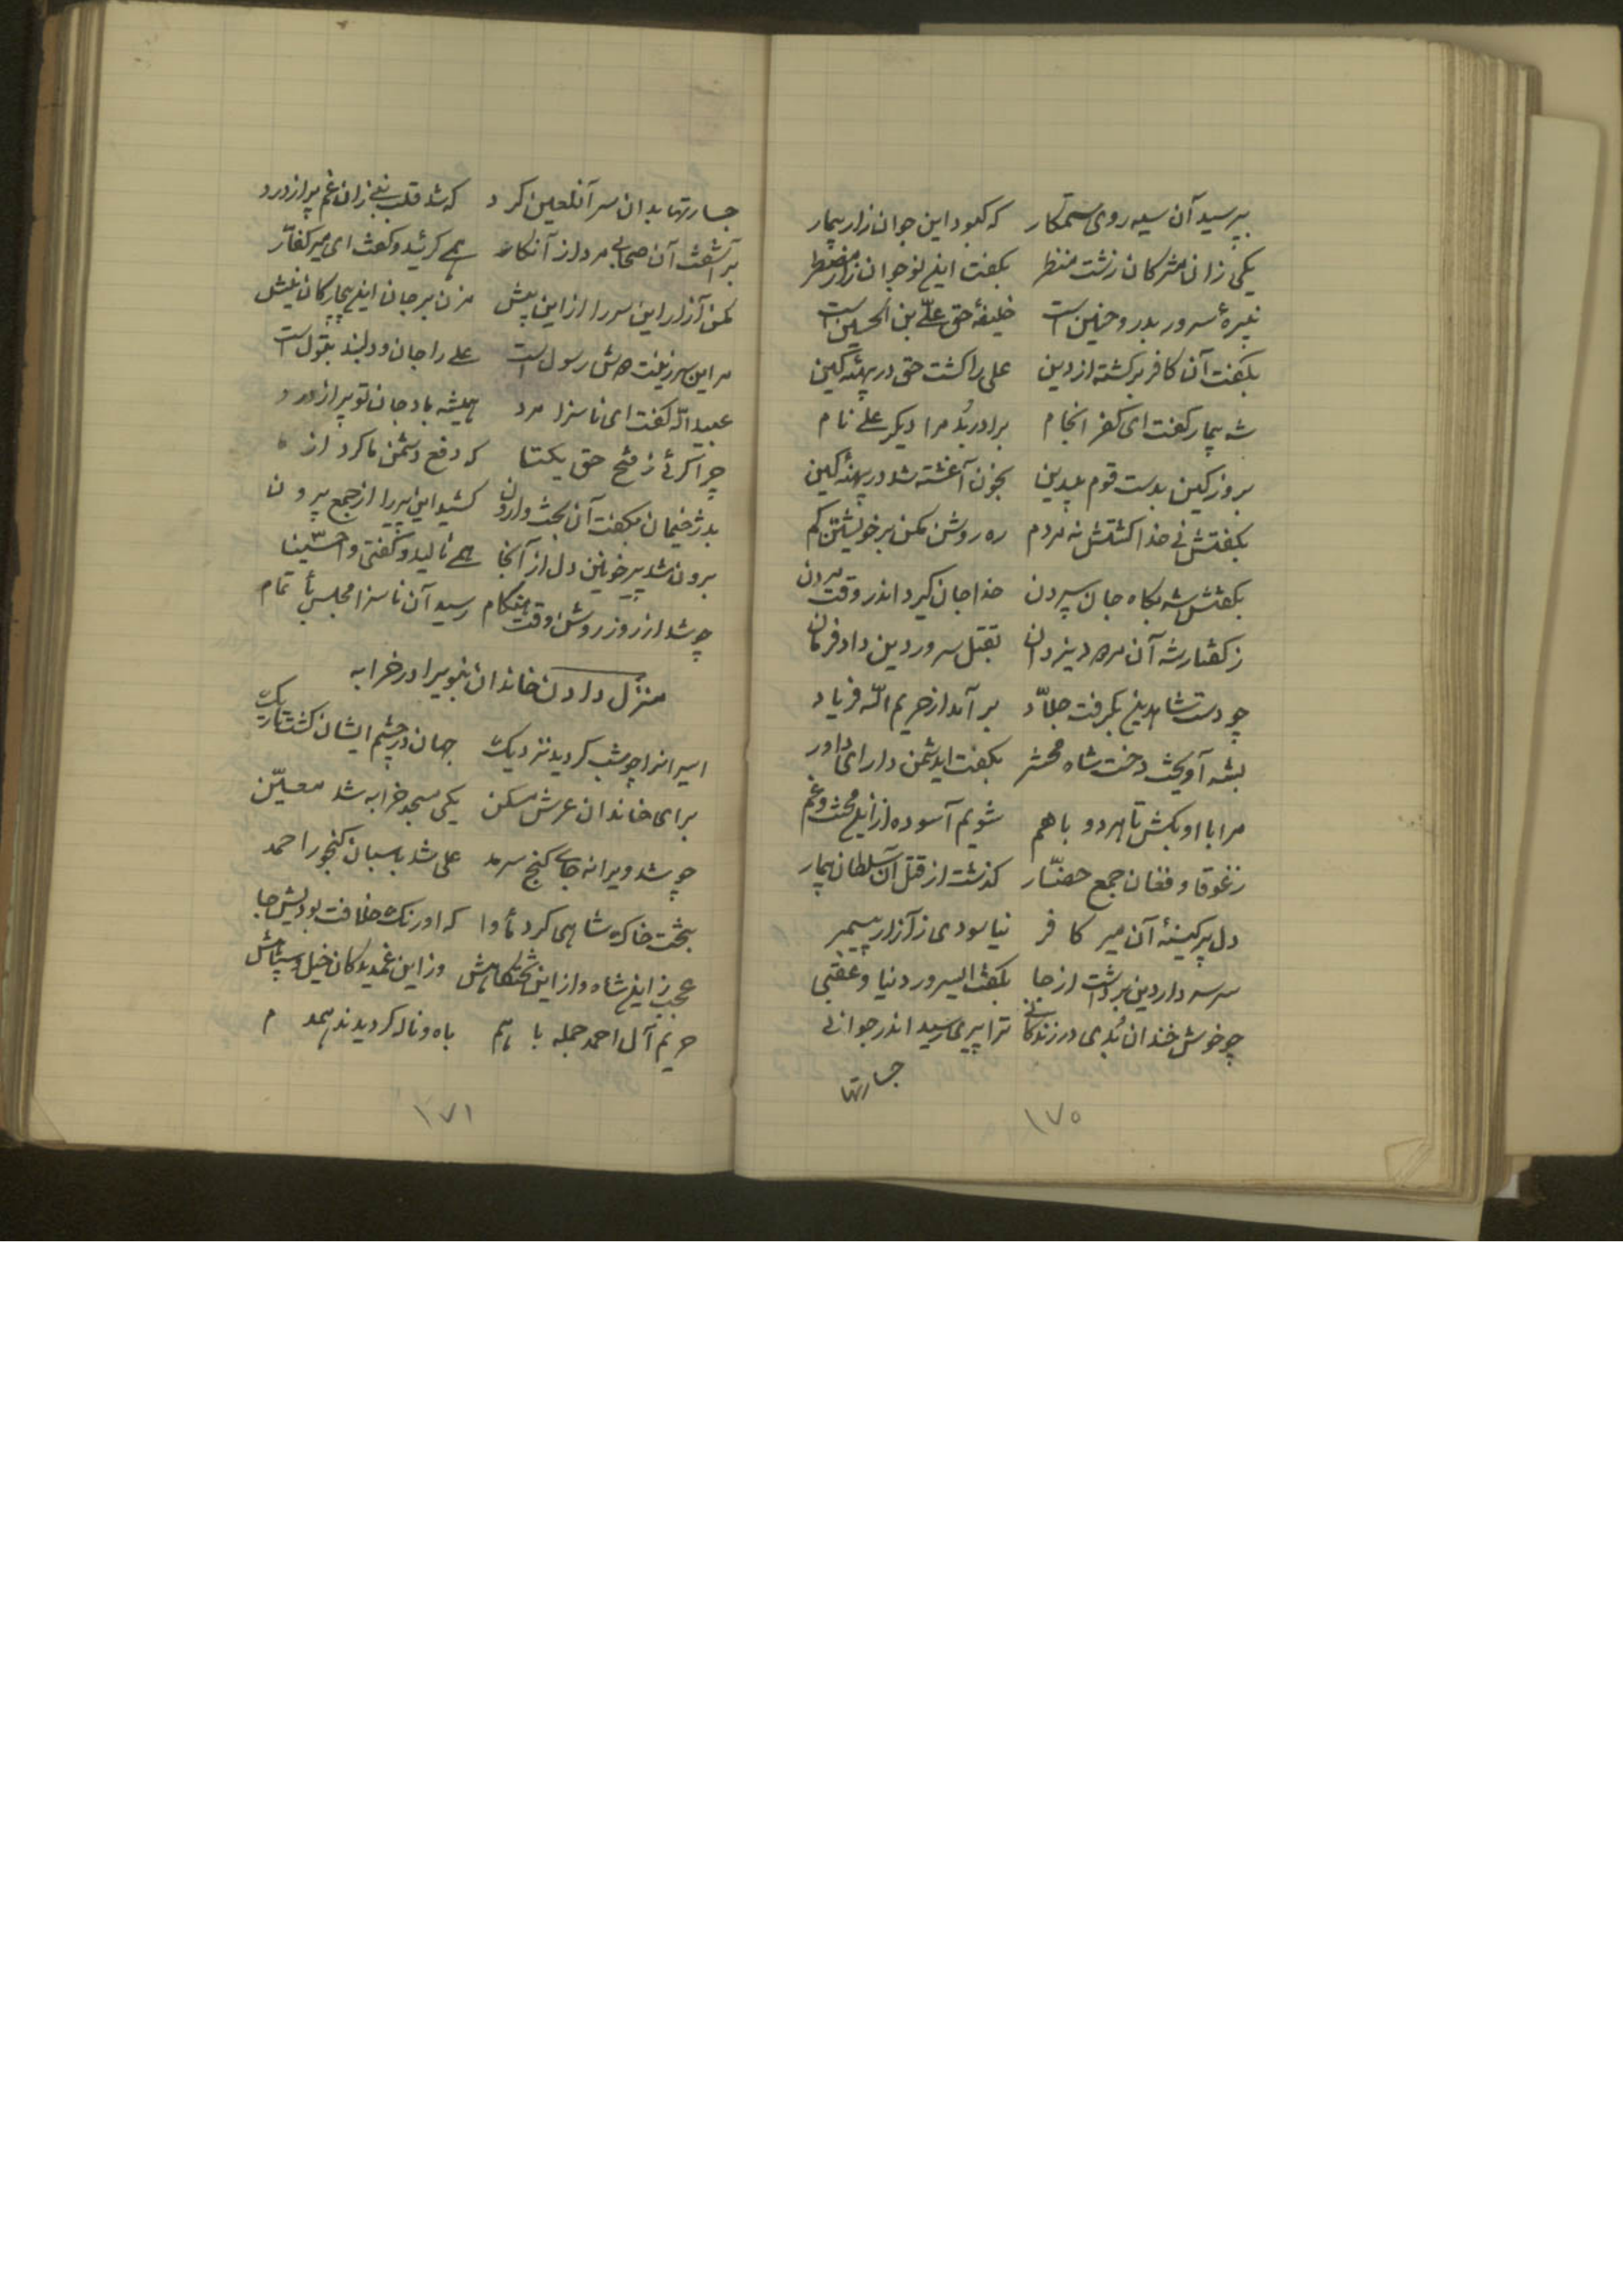 بپرسید آن سیه روی ستمکار که کبود این جوان زار بیمار
یکی زان مشرکان زشت منظر بکفت این نوجوان زار مضطر
نبیرهٔ سرور بدر و حنین است خلیفهٔ حق علیّ بن الحسین است
بکفت آن کافر برکشته از دین علی را کشت حق در پهنهٔ کین
شه بیمار کفت ای کفر انجام برادر بُد مرا دیکر علی نام
بروز کین بدست قوم بیدین بخون آغشته شد در پهنهٔ کین
بکفتش نی خدا کشتش نه مردم ره روشن مکن بر خویشتن کم
بکفتش شه بکاه جان سپردن خدا جان کیرد اندر وقت مردن
ز کفتار شه آن مردود یزدان بقتل سرور دین داد فرمان
چو دست شاهدین بکرفت جلاّد بر آمد از حریم اللّه فریاد
بشه آویخت دخت شاه محشر بکفت ایدشمن دارای داور
مرا با او بکش تا هر دو باهم شویم آسوده از این محنت و غم
ز غوقا و فغان جمع حضّار کذشت از قتل آن سلطان بیمار
دل پر کینهٔ آن میر کافر نیاسودی ز آزار پیمبر
سر سردار دین برداشت از جا بکفت ایسرور دنیا و عقبی
چو خوش خندان بُدی در زندکانی ترا پیری رسید اندر جوانی
جسارتها
۱۷۰
جسارتها بدان سر آنلعین کرد که شد قلب نبی زان غم پر از درد
بر آشفت آن صحابی مرد از آنکار همی کرئید و کفت ای میر کفّار
مکن آزار این سر را از این بیش مزن بر جان این بیچارکان نیش
مر این سر زینت دوش رسول است علی را جان و دلبند بتول است
عبید اللّه کفت ای ناسزا مرد همیشه باد جان تو پر از درد
چرا کرئی ز فتح حق یکتا که دفع دشمن ما کرد از
بدژخیمان بکفت آن بخت وارون کشید این پیر را از جمع بیرون
برون شد پیر خونین دل از آنجا همی نالید و کفتی وا حسینا
چو شد از روز روشن وقت هنکام رسید آن ناسزا مجلس بأتمام
منزل دادن خاندان نبویرا در خرابه
اسیرانرا چو شب کردید نزدیک جهان در چشم ایشان کشت تاریک
برای خاندان عرش مسکن یکی مسجد خرابه شد معیّن
چو شد ویرانه جای کنج سرمد علی شد پاسبان کنجور احمد
بتخت خاک شاهی کرد مأوا که اورنک خلافت بودیش جا
عجب ز این شاه و از این تختکاهش وز این غمدیدکان خیل و سپاهش
حریم آل احمد جمله باهم باه و ناله کردیدند همدم
۱۷۱